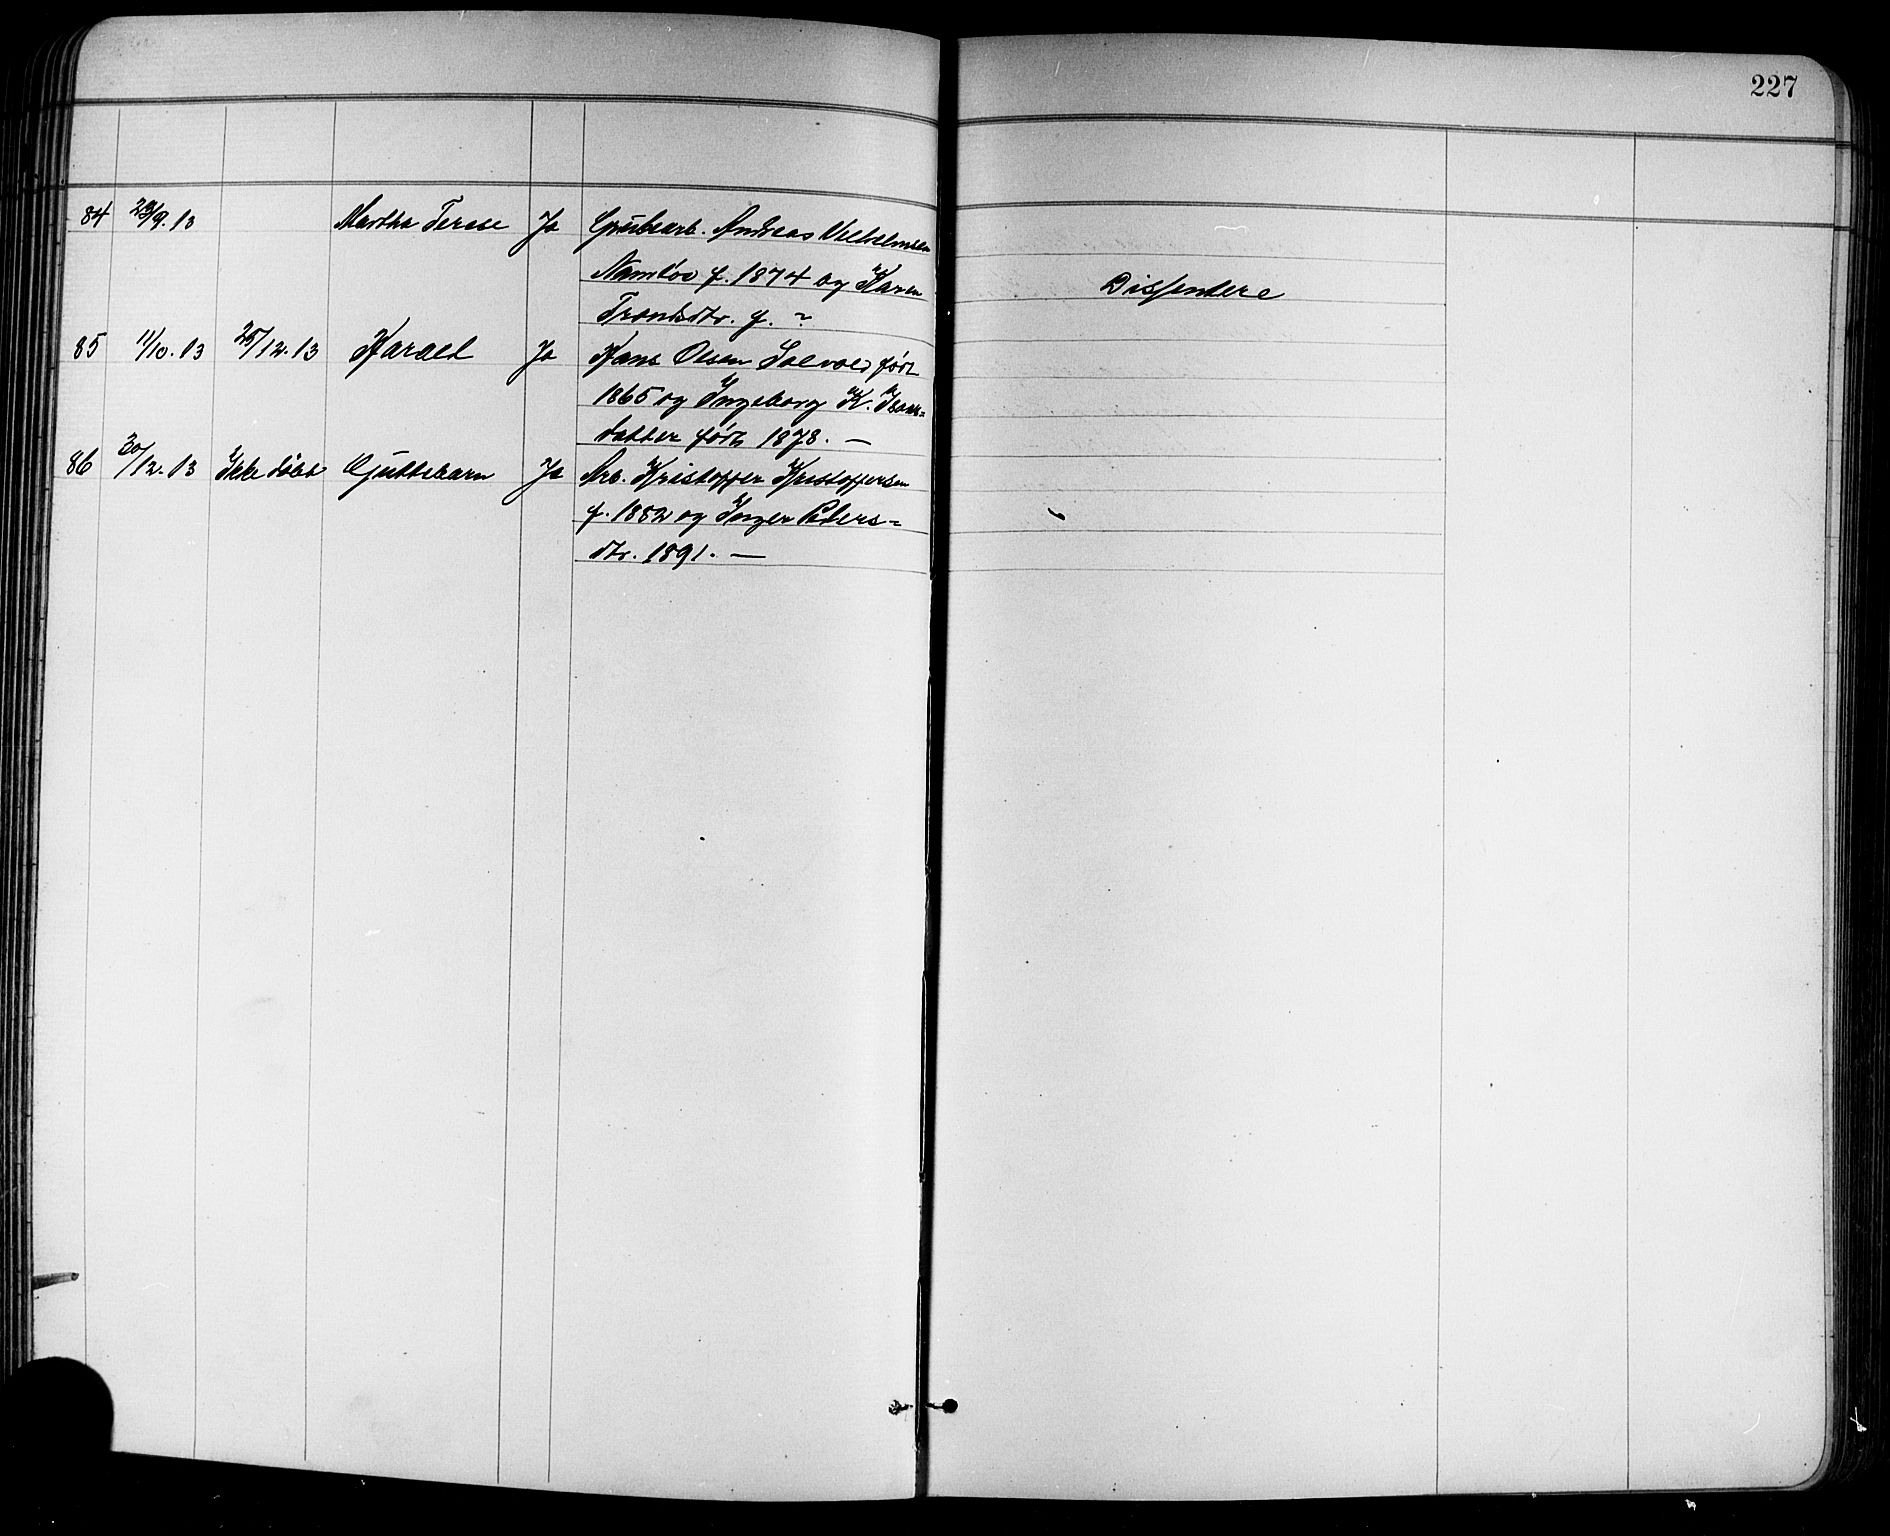 227
84 29/9.13 Martha Terese Ja Grubearb. Andreas Vilhelmsen
f. 1874 og Karen
Dissentere
Trondsdtr. f. ?
85 11/10.13 25/12.13 Harald Ja Hans Olsen Solvold født
1865 og Ingeborg K. Isaks=
datter født 1878. —
86 30/12.13 Ikke døbt Guttebarn Ja Arb. Kristoffer Kristoffersen
f. 1882 og Inger Peders=
dtr. 1891. —